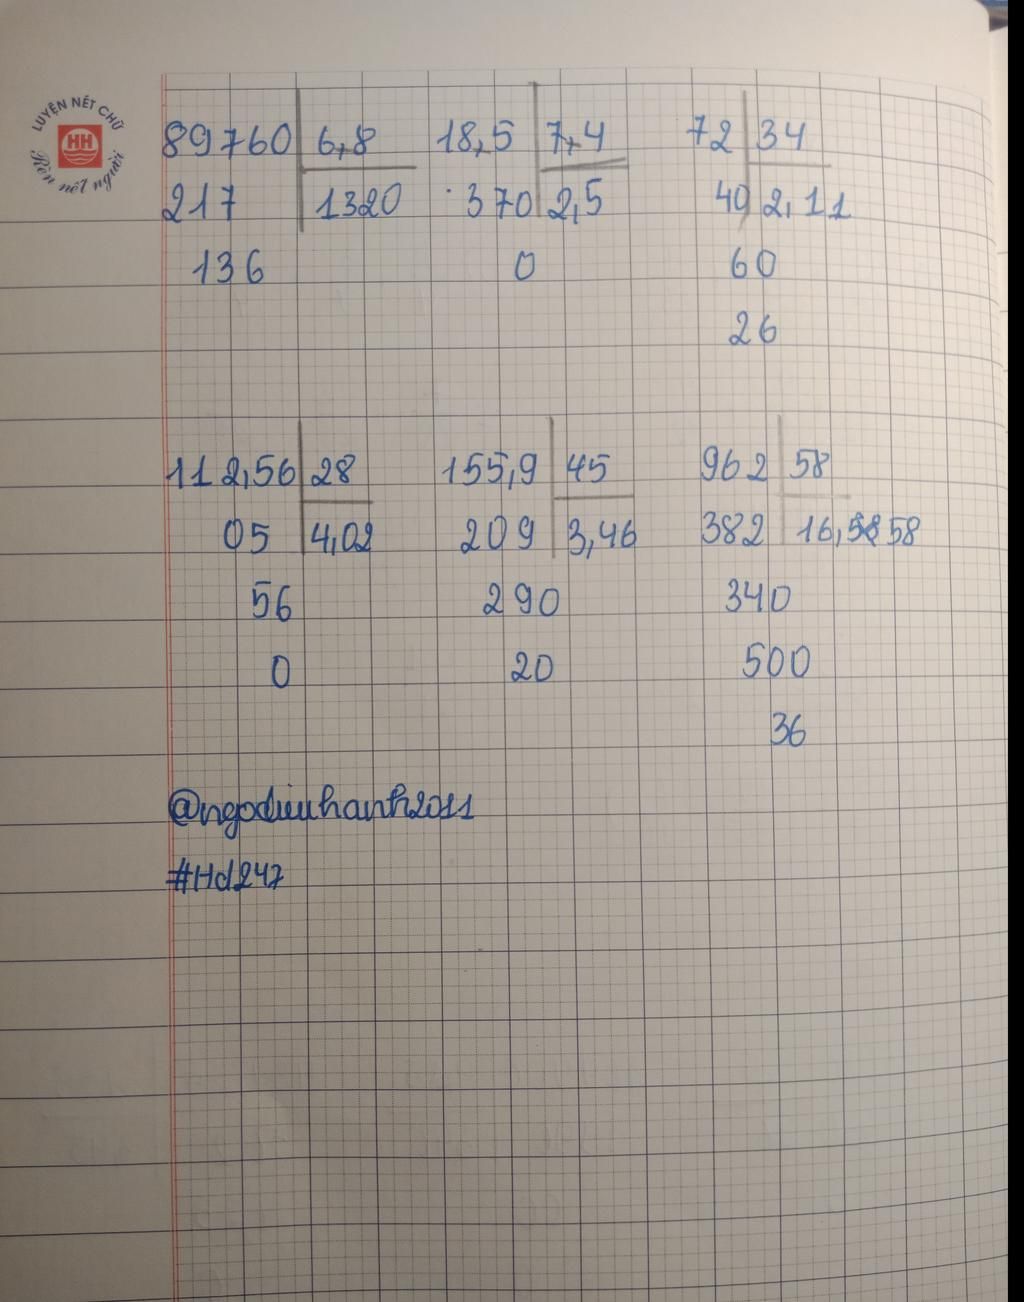 LUYỆN NÉT CHỮ
HH
Rèn nết người
89760 6,8 18,5 7,4 72 34
217 1320 370 2,5 40 2,11
136 0 60
26
112,56 28 155,9 45 962 58
05 4,02 209 3,46 382 16,58 58
56 290 340
0 20 500
36
@ngodieuhanh2011
#Hd247